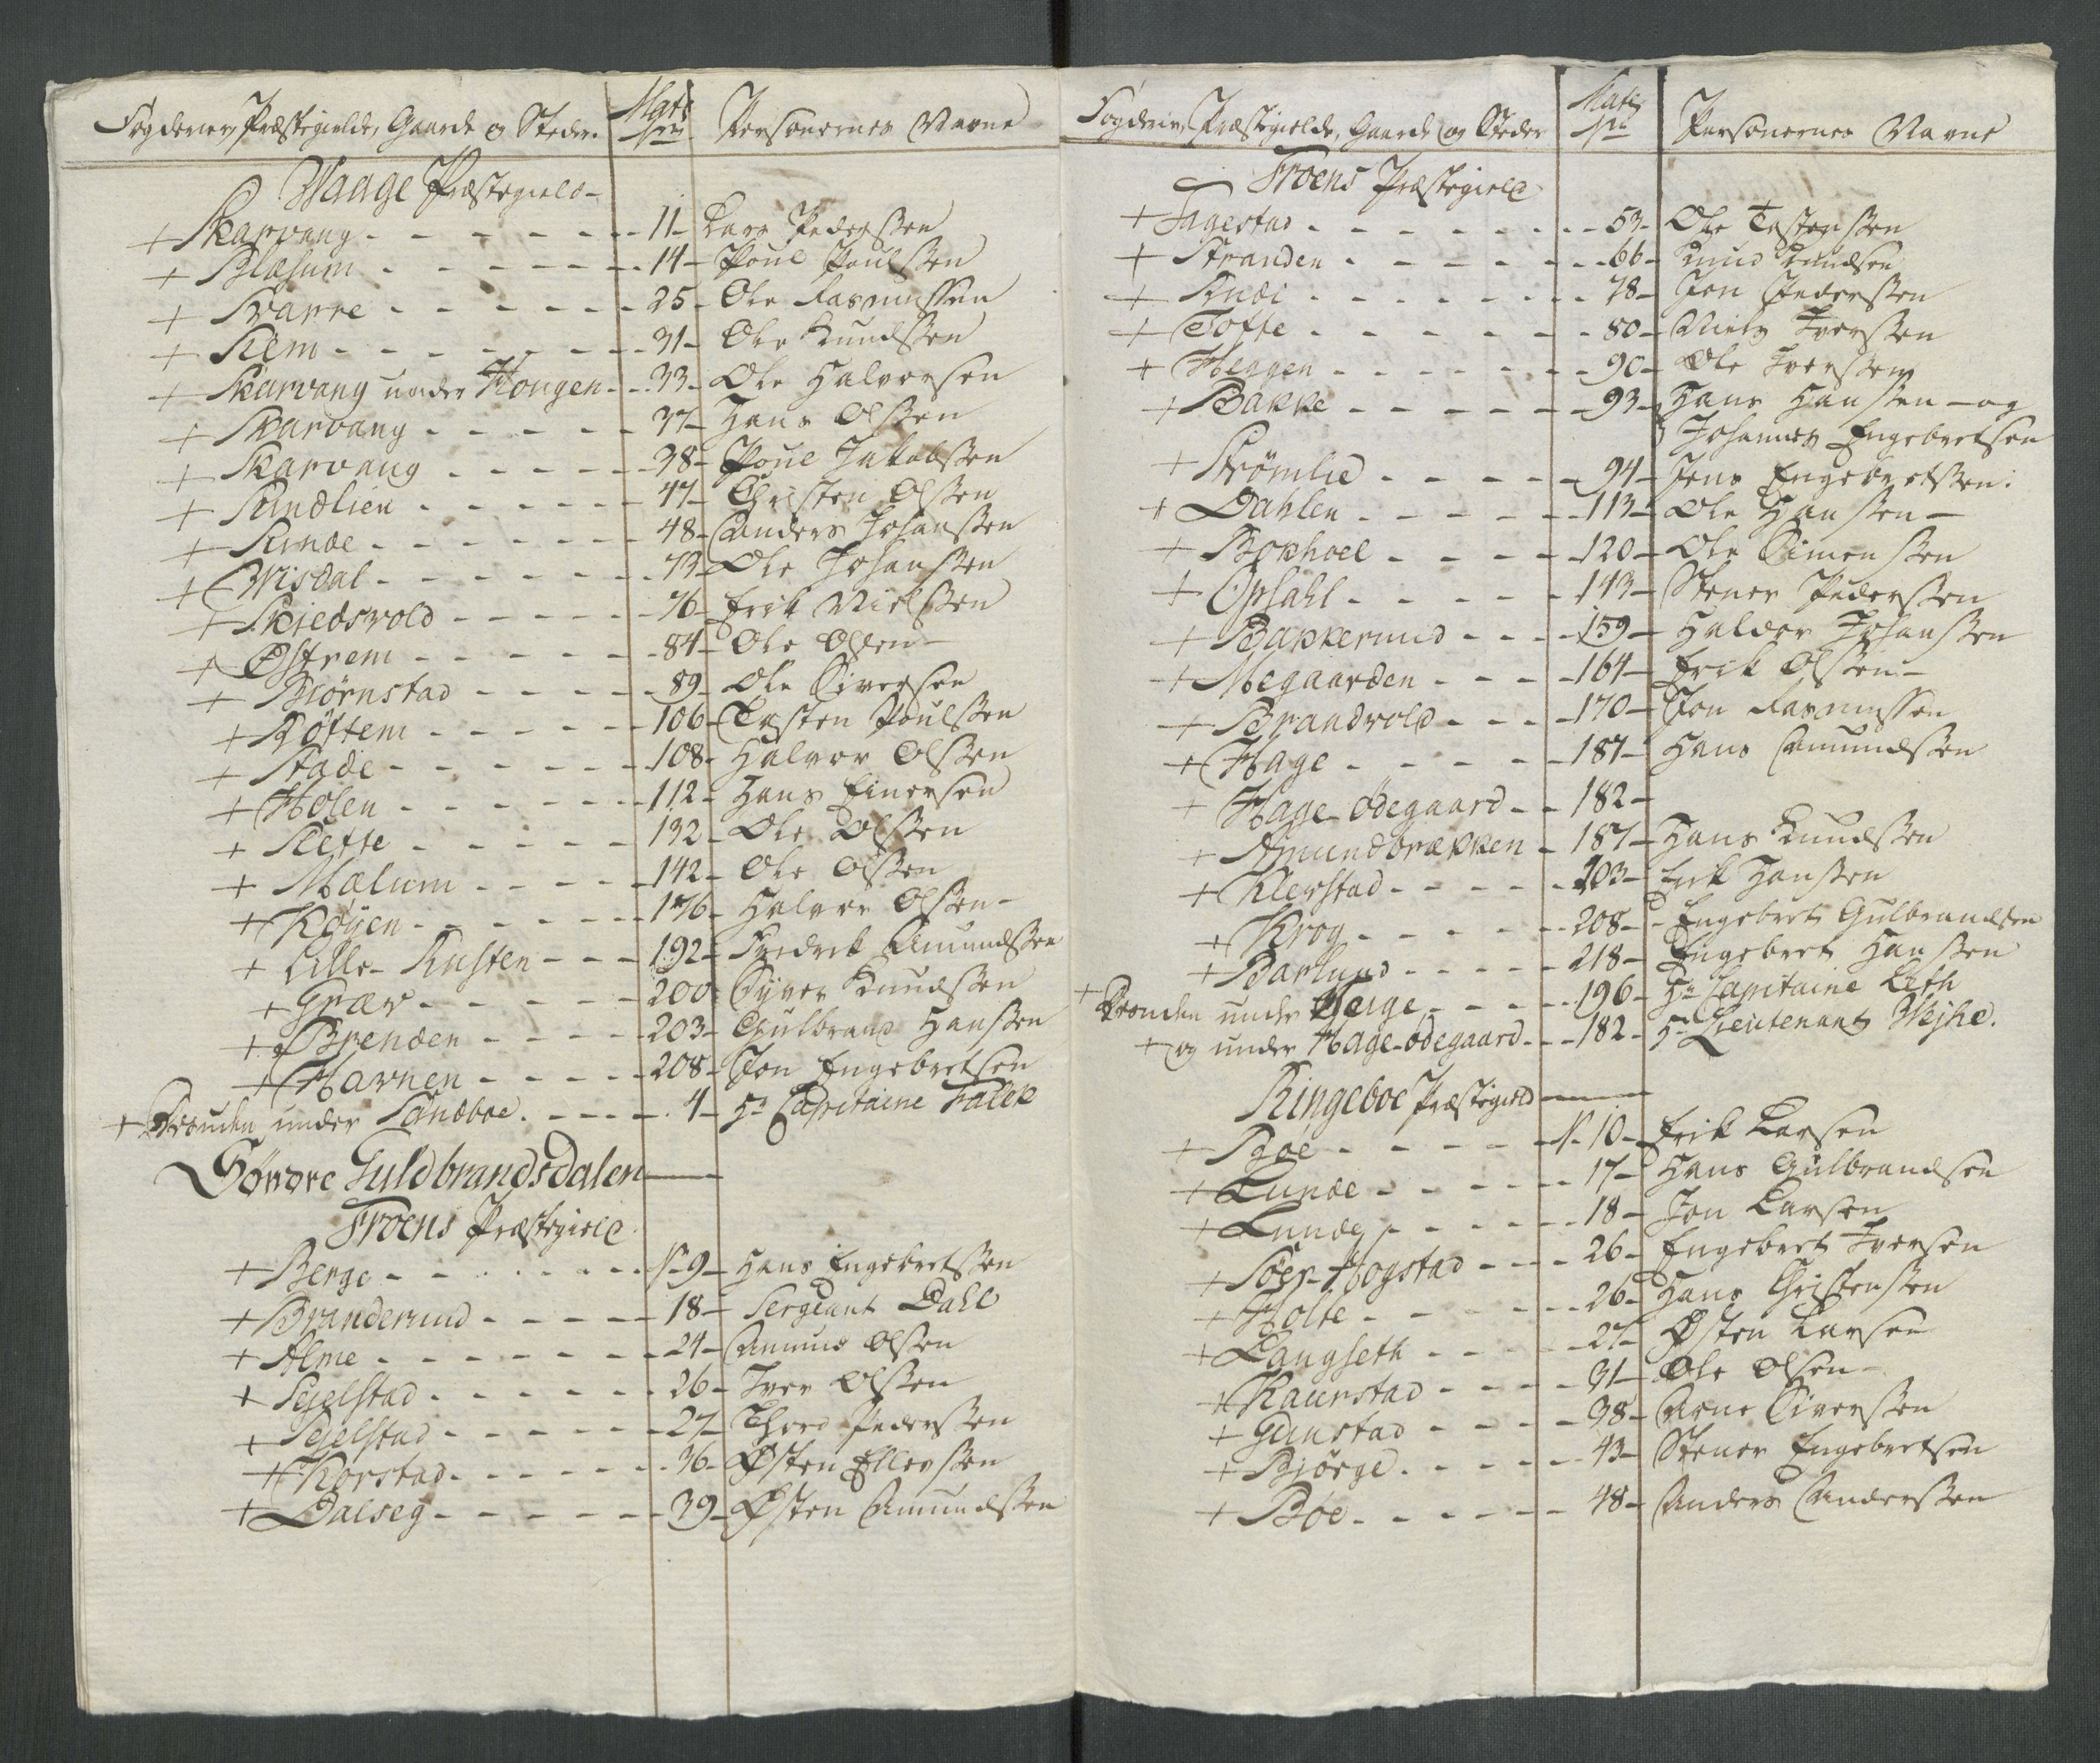 Fogderier, Præstegielde, Gaarde og Steder. Matr No. Personernes Navne
Waage Præstegield -
+ Skarvang - 11 - Lars Pederssen
+ Blæsum - 14 - Poul Poulssen
+ Svarre - 25 - Ole Rasmussen
+ Kem - 31 - Ole Knudssen
+ Skarvang under Hougen - 33 - Ole Halvorsen
+ Skarvang - 37 - Hans Olssen
+ Skarvang - 38 - Poul Jakobssen
+ Sundlien - 47 - Christen Olssen
+ Sunde - 48 - Anders Johanssen
+ Wisdal - 73 - Ole Johanssen
+ Skiedsvold - 76 - Erik Nielssen
+ Østrem - 84 - Ole Olsen -
+ Biørnstad - 89 - Ole Siversen
+ Røftem - 106 - Tosten Poulssen
+ Stade - 108 - Halvor Olssen
+ Holen - 112 - Hans Einersen
+ Klette - 132 - Ole Olssen
+ Mælum - 142 - Ole Olssen
+ Køyen - 176 - Halvor Olssen -
+ Lille - Rusten - 192 - Fredrik Amundssen
+ Græv - 200 - Syver Knudssen
+ Brenden - 203 - Gulbrand Hanssen
+ Harnen - 208 - Jon Engebretsen
+ under Sandboe. - 4 - Hr Capitaine Falck
Søndre Guldbrandsdalen
Froens Præstegield
+ Berge - No 9 - Hans Engebretssen
+ Branderud - 18 - Sergeant Dahl
+ Alme - 24 - Amund Olssen
+ Sejelstad - 26 - Iver Olssen
+ Sejelstad - 27 - Thord Pederssen
+ Korstad - 36 - Østen Ellevssen
+ Dalseg - 39 - Østen Amundssen
Fogderier, Præstegielde, Gaarde og Steder Matr No Personernes Navne
Froens Præstegield
+ Fagestad - 53 - Ole Tostenssen
+ Stranden - 66 - Knud Knudsen
+ Rudi - 78 - Jon Pederssen
+ Tofte - 80 - Niels Iverssen
+ Heggen - 90 - Ole Iverssen
+ Bakke - 93 - Hans Hanssen - og
Johannes Engebretsen
+ Strømlid - 94 - Jens Engebretssen.
+ Dahlen - 113 - Ole Hanssen -
+ Bophoel - 120 - Ole Simenssen
+ Opsahl - 143 - Stener Pederssen
+ Bakkerud - 159 - Haldor Johanssen
+ Megaarden - 164 - Erik Olssen -
+ Brandvold - 170 - Jon Rasmussen
+ Hage - 181 - Hans Amundssen
+ Hage-ødegaard - 182 -
+ Amundbrækken - 187 - Hans Knudssen
+ Klevstad - 203 - Erik Hanssen
+ Krog - 208 - Engebret Gulbrandsen
+ Barlund - 218 - Engebret Hanssen
+ under Berge - 196 - Hr Capitaine Leth
+ og under Hage-ødegaard - 182 - Hr Lieutenant Wejhe.
Ringeboe Præstegield
+ Boe - No 10 - Erik Larsen
+ Lunde - 17 - Hans Gulbrandsen
+ Lunde - 18 - Jon Larsen
+ Søer-Hogstad - 26 - Engebret Iversen
+ Holte - 26 - Hans Christensen
+ Langseth - 27 - Østen Larsen
+ Kaurstad - 31 - Ole Olsen -
+ Gunstad - 38 - Arne Siverssen
+ Biørge - 43 - Stener Engebretsen
+ Bøe - 48 - Anders Anderssen